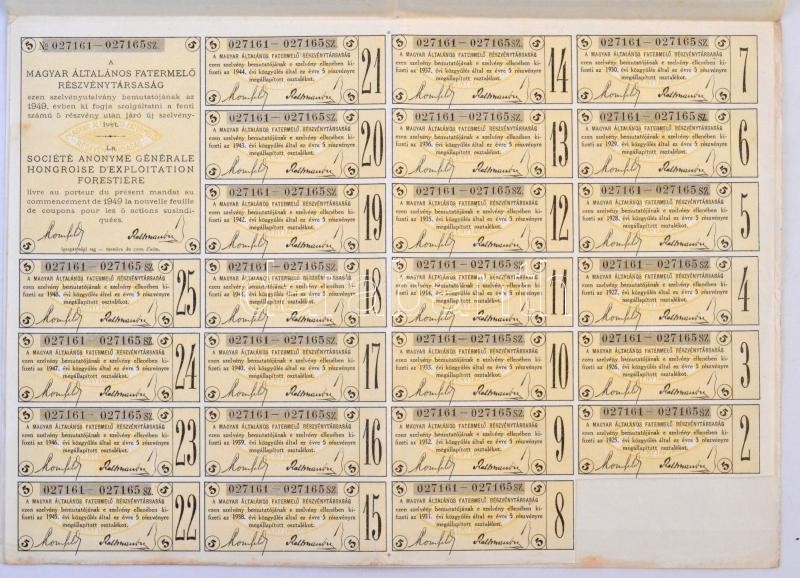 № 027161—027165 SZ.
A
MAGYAR ÁLTALÁNOS FATERMELŐ
RÉSZVÉNYTÁRSASÁG
ezen szelvényutalvány bemutatójának az
1949. évben ki fogja szolgáltatni a fenti
számú 5 részvény után járó új szelvény-
ivet.
La
SOCIÉTÉ ANONYME GÉNÉRALE
HONGROISE D'EXPLOITATION
FORESTIÈRE
livre au porteur du présent mandat au
commencement de 1949 la nouvelle feuille
de coupons pour les 5 actions susindi-
quées.
igazgatósági tag — membre du cons. d'adm.
027161—027165 SZ.
A MAGYAR ÁLTALÁNOS FATERMELŐ RÉSZVÉNYTÁRSASÁG
ezen szelvény bemutatójának e szelvény ellenében ki-
fizeti az 1948. évi közgyűlés által ez évre 5 részvényre
megállapított osztalékot.
25
027161—027165 SZ.
A MAGYAR ÁLTALÁNOS FATERMELŐ RÉSZVÉNYTÁRSASÁG
ezen szelvény bemutatójának e szelvény ellenében ki-
fizeti az 1947. évi közgyűlés által ez évre 5 részvényre
megállapított osztalékot.
24
027161—027165 SZ.
A MAGYAR ÁLTALÁNOS FATERMELŐ RÉSZVÉNYTÁRSASÁG
ezen szelvény bemutatójának e szelvény ellenében ki-
fizeti az 1946. évi közgyűlés által ez évre 5 részvényre
megállapított osztalékot.
23
027161—027165 SZ.
A MAGYAR ÁLTALÁNOS FATERMELŐ RÉSZVÉNYTÁRSASÁG
ezen szelvény bemutatójának e szelvény ellenében ki-
fizeti az 1945. évi közgyűlés által ez évre 5 részvényre
megállapított osztalékot.
22
027161—027165 SZ.
A MAGYAR ÁLTALÁNOS FATERMELŐ RÉSZVÉNYTÁRSASÁG
ezen szelvény bemutatójának e szelvény ellenében ki-
fizeti az 1944. évi közgyűlés által ez évre 5 részvényre
megállapított osztalékot.
21
027161—027165 SZ.
A MAGYAR ÁLTALÁNOS FATERMELŐ RÉSZVÉNYTÁRSASÁG
ezen szelvény bemutatójának e szelvény ellenében ki-
fizeti az 1943. évi közgyűlés által ez évre 5 részvényre
megállapított osztalékot.
20
027161—027165 SZ.
A MAGYAR ÁLTALÁNOS FATERMELŐ RÉSZVÉNYTÁRSASÁG
ezen szelvény bemutatójának e szelvény ellenében ki-
fizeti az 1942. évi közgyűlés által ez évre 5 részvényre
megállapított osztalékot.
19
027161—027165 SZ.
A MAGYAR ÁLTALÁNOS FATERMELŐ RÉSZVÉNYTÁRSASÁG
ezen szelvény bemutatójának e szelvény ellenében ki-
fizeti az 1941. évi közgyűlés által ez évre 5 részvényre
megállapított osztalékot.
18
027161—027165 SZ.
A MAGYAR ÁLTALÁNOS FATERMELŐ RÉSZVÉNYTÁRSASÁG
ezen szelvény bemutatójának e szelvény ellenében ki-
fizeti az 1940. évi közgyűlés által ez évre 5 részvényre
megállapított osztalékot.
17
027161—027165 SZ.
A MAGYAR ÁLTALÁNOS FATERMELŐ RÉSZVÉNYTÁRSASÁG
ezen szelvény bemutatójának e szelvény ellenében ki-
fizeti az 1939. évi közgyűlés által ez évre 5 részvényre
megállapított osztalékot.
16
027161—027165 SZ.
A MAGYAR ÁLTALÁNOS FATERMELŐ RÉSZVÉNYTÁRSASÁG
ezen szelvény bemutatójának e szelvény ellenében ki-
fizeti az 1938. évi közgyűlés által ez évre 5 részvényre
megállapított osztalékot.
15
027161—027165 SZ.
A MAGYAR ÁLTALÁNOS FATERMELŐ RÉSZVÉNYTÁRSASÁG
ezen szelvény bemutatójának e szelvény ellenében ki-
fizeti az 1937. évi közgyűlés által ez évre 5 részvényre
megállapított osztalékot.
14
027161—027165 SZ.
A MAGYAR ÁLTALÁNOS FATERMELŐ RÉSZVÉNYTÁRSASÁG
ezen szelvény bemutatójának e szelvény ellenében ki-
fizeti az 1936. évi közgyűlés által ez évre 5 részvényre
megállapított osztalékot.
13
027161—027165 SZ.
A MAGYAR ÁLTALÁNOS FATERMELŐ RÉSZVÉNYTÁRSASÁG
ezen szelvény bemutatójának e szelvény ellenében ki-
fizeti az 1935. évi közgyűlés által ez évre 5 részvényre
megállapított osztalékot.
12
027161—027165 SZ.
A MAGYAR ÁLTALÁNOS FATERMELŐ RÉSZVÉNYTÁRSASÁG
ezen szelvény bemutatójának e szelvény ellenében ki-
fizeti az 1934. évi közgyűlés által ez évre 5 részvényre
megállapított osztalékot.
11
027161—027165 SZ.
A MAGYAR ÁLTALÁNOS FATERMELŐ RÉSZVÉNYTÁRSASÁG
ezen szelvény bemutatójának e szelvény ellenében ki-
fizeti az 1933. évi közgyűlés által ez évre 5 részvényre
megállapított osztalékot.
10
027161—027165 SZ.
A MAGYAR ÁLTALÁNOS FATERMELŐ RÉSZVÉNYTÁRSASÁG
ezen szelvény bemutatójának e szelvény ellenében ki-
fizeti az 1932. évi közgyűlés által ez évre 5 részvényre
megállapított osztalékot.
9
027161—027165 SZ.
A MAGYAR ÁLTALÁNOS FATERMELŐ RÉSZVÉNYTÁRSASÁG
ezen szelvény bemutatójának e szelvény ellenében ki-
fizeti az 1931. évi közgyűlés által ez évre 5 részvényre
megállapított osztalékot.
8
027161—027165 SZ.
A MAGYAR ÁLTALÁNOS FATERMELŐ RÉSZVÉNYTÁRSASÁG
ezen szelvény bemutatójának e szelvény ellenében ki-
fizeti az 1930. évi közgyűlés által ez évre 5 részvényre
megállapított osztalékot.
7
027161—027165 SZ.
A MAGYAR ÁLTALÁNOS FATERMELŐ RÉSZVÉNYTÁRSASÁG
ezen szelvény bemutatójának e szelvény ellenében ki-
fizeti az 1929. évi közgyűlés által ez évre 5 részvényre
megállapított osztalékot.
6
027161—027165 SZ.
A MAGYAR ÁLTALÁNOS FATERMELŐ RÉSZVÉNYTÁRSASÁG
ezen szelvény bemutatójának e szelvény ellenében ki-
fizeti az 1928. évi közgyűlés által ez évre 5 részvényre
megállapított osztalékot.
5
027161—027165 SZ.
A MAGYAR ÁLTALÁNOS FATERMELŐ RÉSZVÉNYTÁRSASÁG
ezen szelvény bemutatójának e szelvény ellenében ki-
fizeti az 1927. évi közgyűlés által ez évre 5 részvényre
megállapított osztalékot.
4
027161—027165 SZ.
A MAGYAR ÁLTALÁNOS FATERMELŐ RÉSZVÉNYTÁRSASÁG
ezen szelvény bemutatójának e szelvény ellenében ki-
fizeti az 1926. évi közgyűlés által ez évre 5 részvényre
megállapított osztalékot.
3
027161—027165 SZ.
A MAGYAR ÁLTALÁNOS FATERMELŐ RÉSZVÉNYTÁRSASÁG
ezen szelvény bemutatójának e szelvény ellenében ki-
fizeti az 1925. évi közgyűlés által ez évre 5 részvényre
megállapított osztalékot.
2